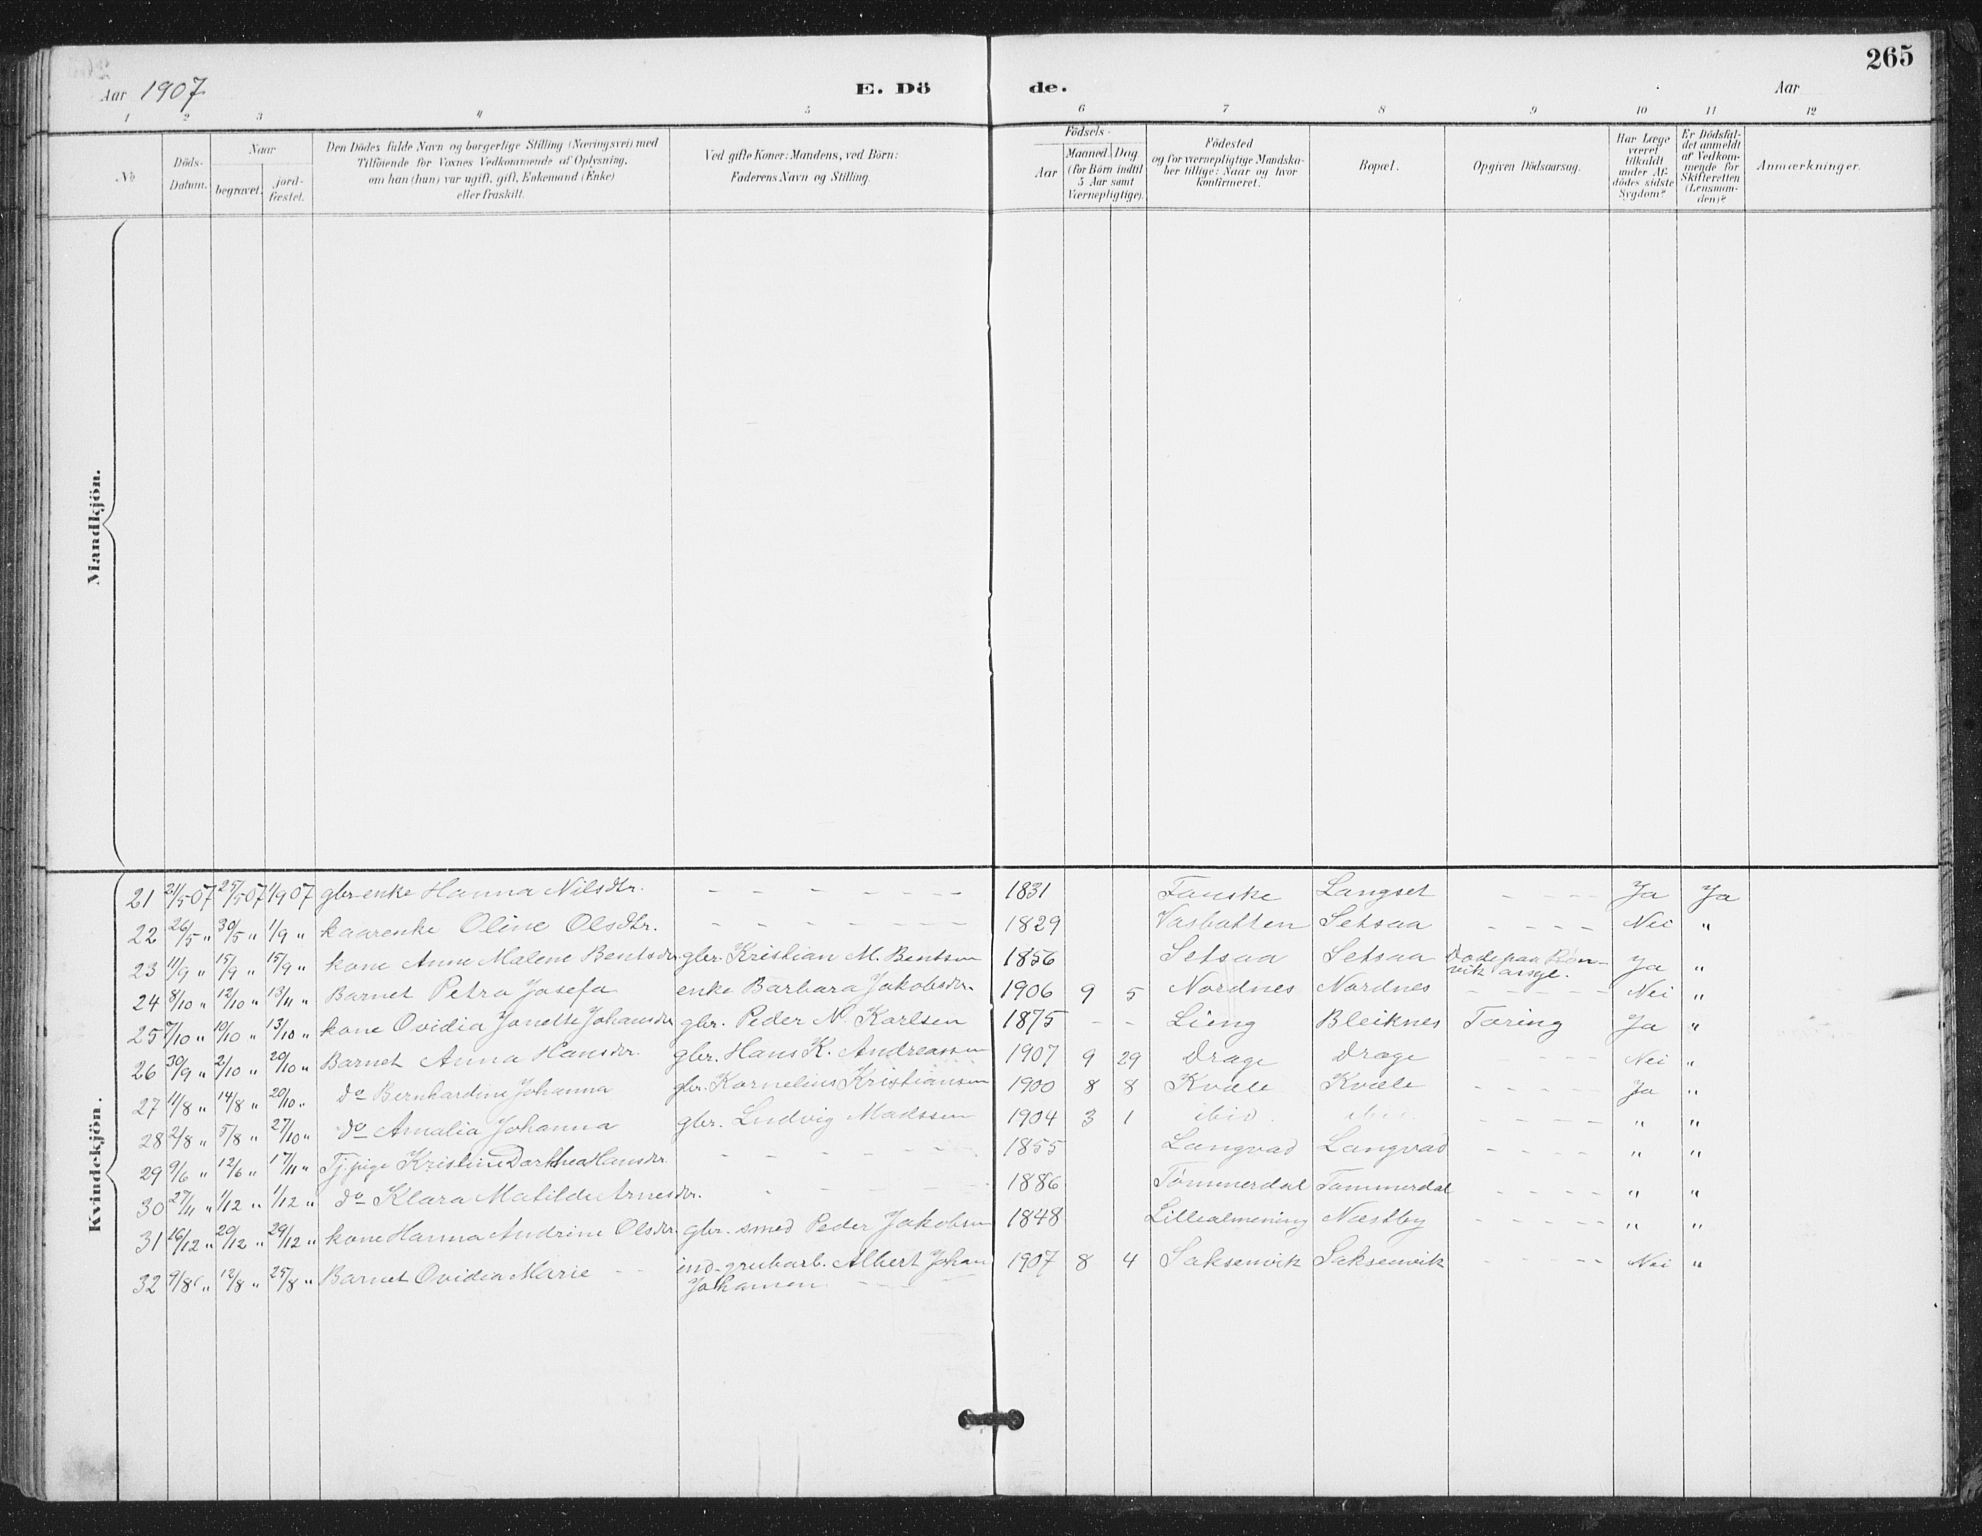 265
Aar 1907 E. Dö de. Aar
1 2 3 4 5 6 7 8 9 10 11 12
№
Döds-Datum.
Naar
begravet.
jord-fæstet.
Den Dödes fulde Navn og borgerlige Stilling (Næringsvei) med
Tilföiende for Voxnes Vedkommende af Oplysning,
om han (hun) var ugift, gift, Enkemand (Enke)
eller fraskilt.
Ved gifte Koner: Mandens, ved Börn:
Faderens Navn og Stilling.
Födsels-
Aar
Maaned. Dag.
(for Börn indtil
5 Aar samt
Værnepligtige).
Födested
og for værnepligtige Mandska-
ber tillige: Naar og hvor
konfirmeret.
Bopæl.
Opgiven Dödsaarsag.
Har Læge
været
tilkaldt
under Af-
dödes sidste
Sygdom?
Er Dödsfal-
det anmeldt
af Vedkom-
mende for
Skifteretten
(Lensman-
den)?
Anmærkninger.
Mandkjön.
Kvindekjön.
21 21/5 07 25/5 07 1/9 07 gbr. enke Hanna Nilsdtr. - - - - - - 1831 Fauske Langset - - - - Ja Ja
22 26/5 " 30/5 " 1/9 " kaarenke Oline Olsdtr. - - - - - - 1829 Vasbotten Setsaa - - - - Nei "
23 11/9 " 15/9 " 15/9 " kone Anne Malene Bentsdtr. gbr. Kristian M. Bentsen 1856 Setsaa Setsaa Døde paa Røn-
vik asyl. Ja "
24 8/10 " 12/10 " 13/11 " Barnet Petra Josefa enke Barbara Jakobsdtr. 1906 9 5 Nordnes Nordnes - - - - Nei "
25 7/10 " 10/10 " 13/10 " kone Ovidia Jonette Johansdtr. gbr. Peder N. Karlsen 1875 - - Lieng Bleiknes Tæring Ja "
26 30/9 " 2/10 " 20/10 " Barnet Anna Hansdtr. gbr. Hans K. Andreassen 1907 9 29 Drage Drage - - - - Nei "
27 11/8 " 14/8 " 20/10 " do Bernhardine Johanna gbr. Kornelius Kristiansen 1900 8 8 Kvæle Kvæle - - - - Ja "
28 2/8 " 5/8 " 27/10 " do Amalia Johanna gbr. Ludvig Madssen 1904 3 1 ibid. ibid. - - - - " "
29 9/6 " 12/6 " 17/11 " Tj. pige Kristine Dorthea Hansdtr. - - - - - - 1855 Langvad Langvad - - - - " "
30 27/11 " 1/12 " 1/12 " do Klara Matilde Arnesdtr. - - - - 1886 Tømmerdal Tømmerdal - - - - " "
31 16/12 " 29/12 " 29/12 " kone Hanna Andrine Olsdtr. gbr. smed Peder Jakobsen 1848 Lillealmening Næstby - - - - " "
32 9/8 " 12/8 " 25/8 " Barnet Ovidia Marie - - ind. grubarb. Albert Johan
Johansen - - - 1907 8 4 Saksenvik Saksenvik - - - - Nei "